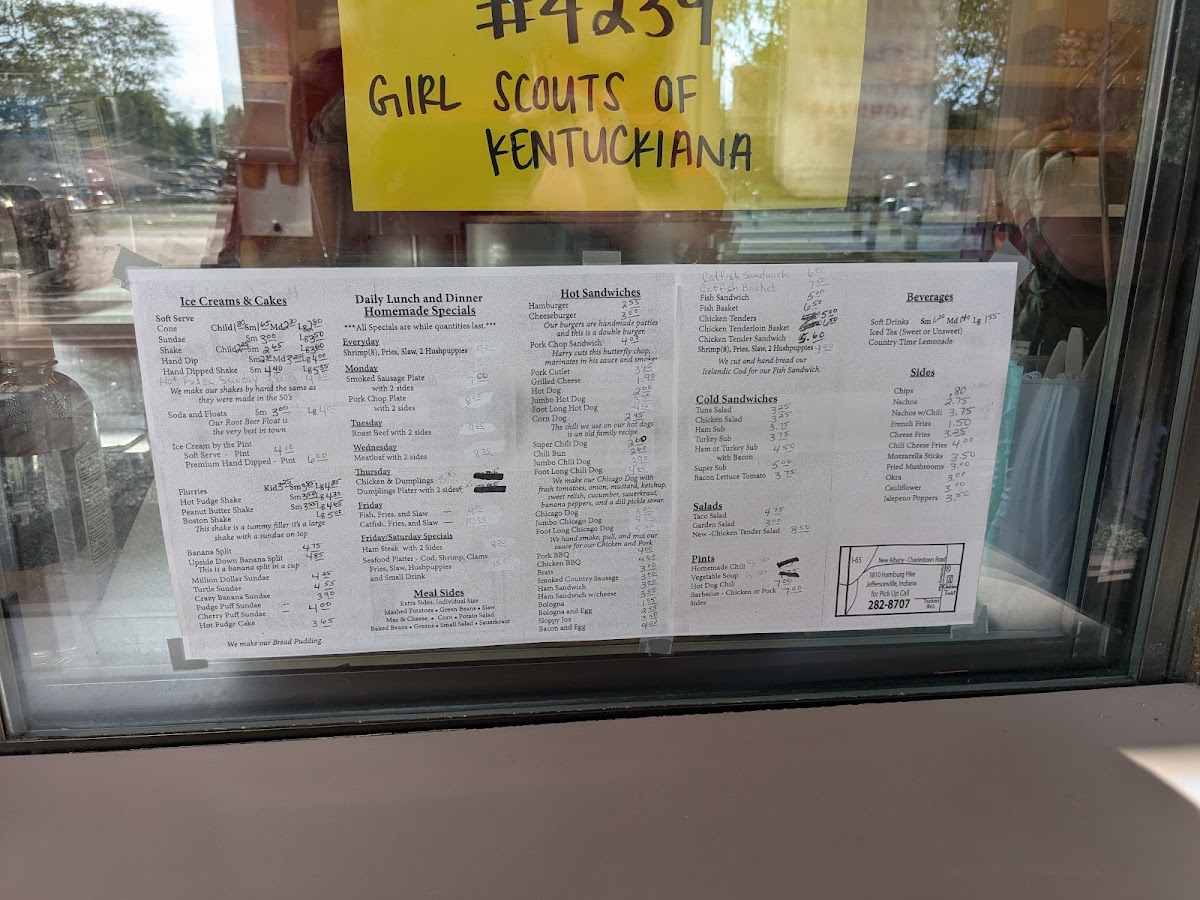 #4239
GIRL SCOUTS OF
KENTUCKIANA
Ice Creams & Cakes
Soft Serve
Cone Child Sm Md Lg
Sundae Sm 3.00 Lg 3.50
Shake Child Sm 2.65 Lg
Hand Dip Sm Md Lg
Hand Dipped Shake Sm 4.40 Lg
Hot Fudge Sunday
We make our shakes by hand the same as
they were made in the 50's
Soda and Floats Sm 3.00 Lg
Our Root Beer Float is
the very best in town
Ice Cream by the Pint
Soft Serve - Pint 4.10
Premium Hand Dipped - Pint 6.00
Flurries Kid Sm Lg
Hot Fudge Shake Sm Lg
Peanut Butter Shake Sm Lg
Boston Shake Lg
This shake is a tummy filler it's a large
shake with a sundae on top
Banana Split 4.75
Upside Down Banana Split 4.85
This is a banana split in a cup
Million Dollar Sundae 4.25
Turtle Sundae 4.55
Crazy Banana Sundae 3.90
Fudge Puff Sundae
Cherry Puff Sundae 4.00
Hot Fudge Cake 3.65
We make our Bread Pudding
Daily Lunch and Dinner
Homemade Specials
***All Specials are while quantities last.***
Everyday
Shrimp(8), Fries, Slaw, 2 Hushpuppies
Monday
Smoked Sausage Plate
with 2 sides
Pork Chop Plate
with 2 sides
Tuesday
Roast Beef with 2 sides
Wednesday
Meatloaf with 2 sides
Thursday
Chicken & Dumplings
Dumplings Plater with 2 sides
Friday
Fish, Fries, and Slaw
Catfish, Fries, and Slaw
Friday/Saturday Specials
Ham Steak with 2 Sides
Seafood Platter - Cod, Shrimp, Clams
Fries, Slaw, Hushpuppies
and Small Drink
Meal Sides
Extra Sides, Individual Size
Mashed Potatoes • Green Beans • Slaw
Mac & Cheese • Corn • Potato Salad
Baked Beans • Greens • Small Salad • Sauerkraut
Hot Sandwiches
Hamburger 2.55
Cheeseburger
Our burgers are handmade patties
and this is a double burger
Pork Chop Sandwich
Harry cuts this butterfly chop,
marinates in his sauce and smokes
Pork Cutlet
Grilled Cheese 1.90
Hot Dog 2.00
Jumbo Hot Dog
Foot Long Hot Dog
Corn Dog
The chili we use on our hot dogs
is an old family recipe
Super Chili Dog
Chili Bun
Jumbo Chili Dog
Foot Long Chili Dog
We make our Chicago Dog with
fresh tomatoes, onion, mustard, ketchup,
sweet relish, cucumber, sauerkraut,
banana peppers, and a dill pickle spear.
Chicago Dog
Jumbo Chicago Dog
Foot Long Chicago Dog
We hand smoke, pull, and mix our
sauce for our Chicken and Pork
Pork BBQ
Chicken BBQ
Brats
Smoked Country Sausage
Ham Sandwich
Ham Sandwich w/cheese
Bologna
Bologna and Egg
Sloppy Joe
Bacon and Egg
Catfish Sandwich
Catfish Basket
Fish Sandwich 5.00
Fish Basket 6.50
Chicken Tenders 5.00
Chicken Tenderloin Basket 6.50
Chicken Tender Sandwich 5.60
Shrimp(8), Fries, Slaw, 2 Hushpuppies
We cut and hand bread our
Icelandic Cod for our Fish Sandwich.
Cold Sandwiches
Tuna Salad 3.25
Chicken Salad 3.25
Ham Sub 3.75
Turkey Sub 3.75
Ham or Turkey Sub 4.50
with Bacon
Super Sub 5.00
Bacon Lettuce Tomato 3.75
Salads
Taco Salad 4.75
Garden Salad 3.00
New - Chicken Tender Salad 8.50
Pints
Homemade Chili
Vegetable Soup
Hot Dog Chili 7.00
Barbecue - Chicken or Pork 7.00
Sides
Beverages
Soft Drinks Sm Md Lg 1.55
Iced Tea (Sweet or Unsweet)
Country Time Lemonade
Sides
Chips .80
Nachos 2.75
Nachos w/Chili 3.75
French Fries 1.50
Cheese Fries 3.25
Chili Cheese Fries 4.00
Mozzarella Sticks 3.50
Fried Mushrooms 3.00
Okra 3.00
Cauliflower 3.00
Jalepeno Poppers 3.50
I-65 New Albany - Charlestown Road
3810 Hamburg Pike
Jeffersonville, Indiana
for Pick Up Call
282-8707